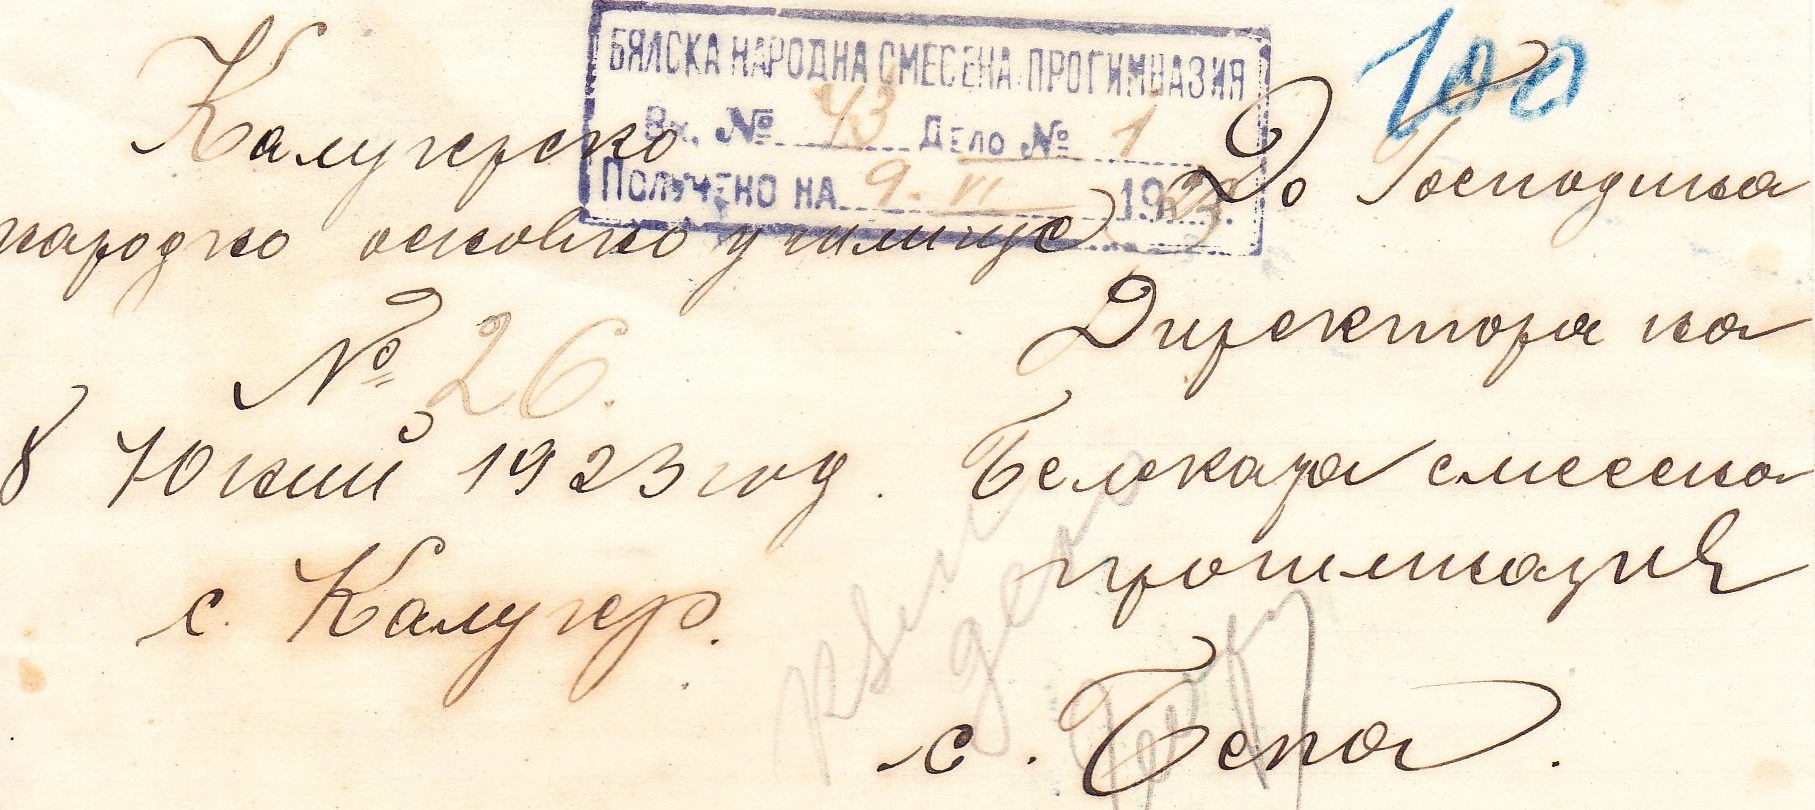 БЯЛСКА НАРОДНА СМЕСЕНА ПРОГИМНАЗИЯ
Вх. № 43 Дело № 1
Получено на 9. VI 1923
100
Калугерско
народно основно училище
№ 26.
8 Юний 1923 год.
с. Калугер.
До Господина
Директора на
Белската смесена
прогимназия
с. Бела.
към
дело